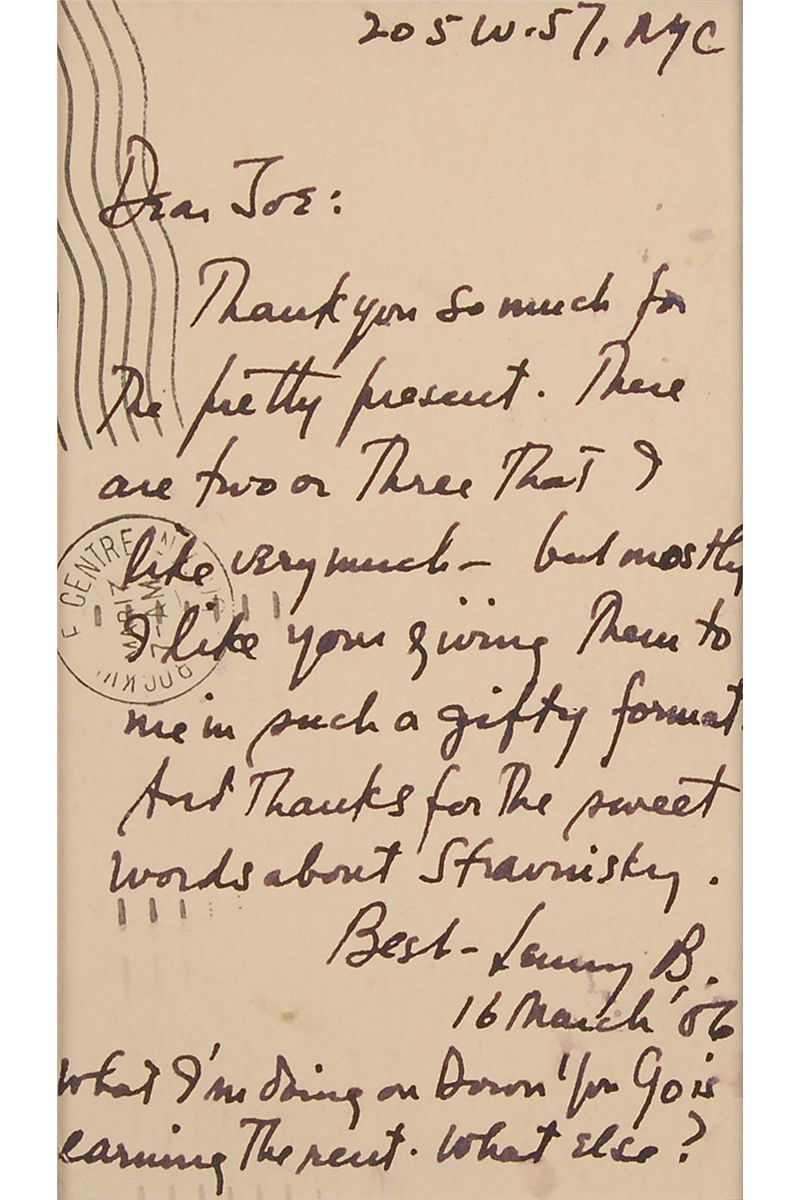 205 W. 57, NYC
Dear Joe:
Thank you so much for
the pretty present. There
are two or three that I
like very much – but mostly
I like your giving them to
me in such a gifty format.
And thanks for the sweet
words about Stravinsky.
Best – Lenny B.
16 March '56
What I'm doing on Down You Go is
earning the rent. What else?
CENTRE
MAR 17
AM